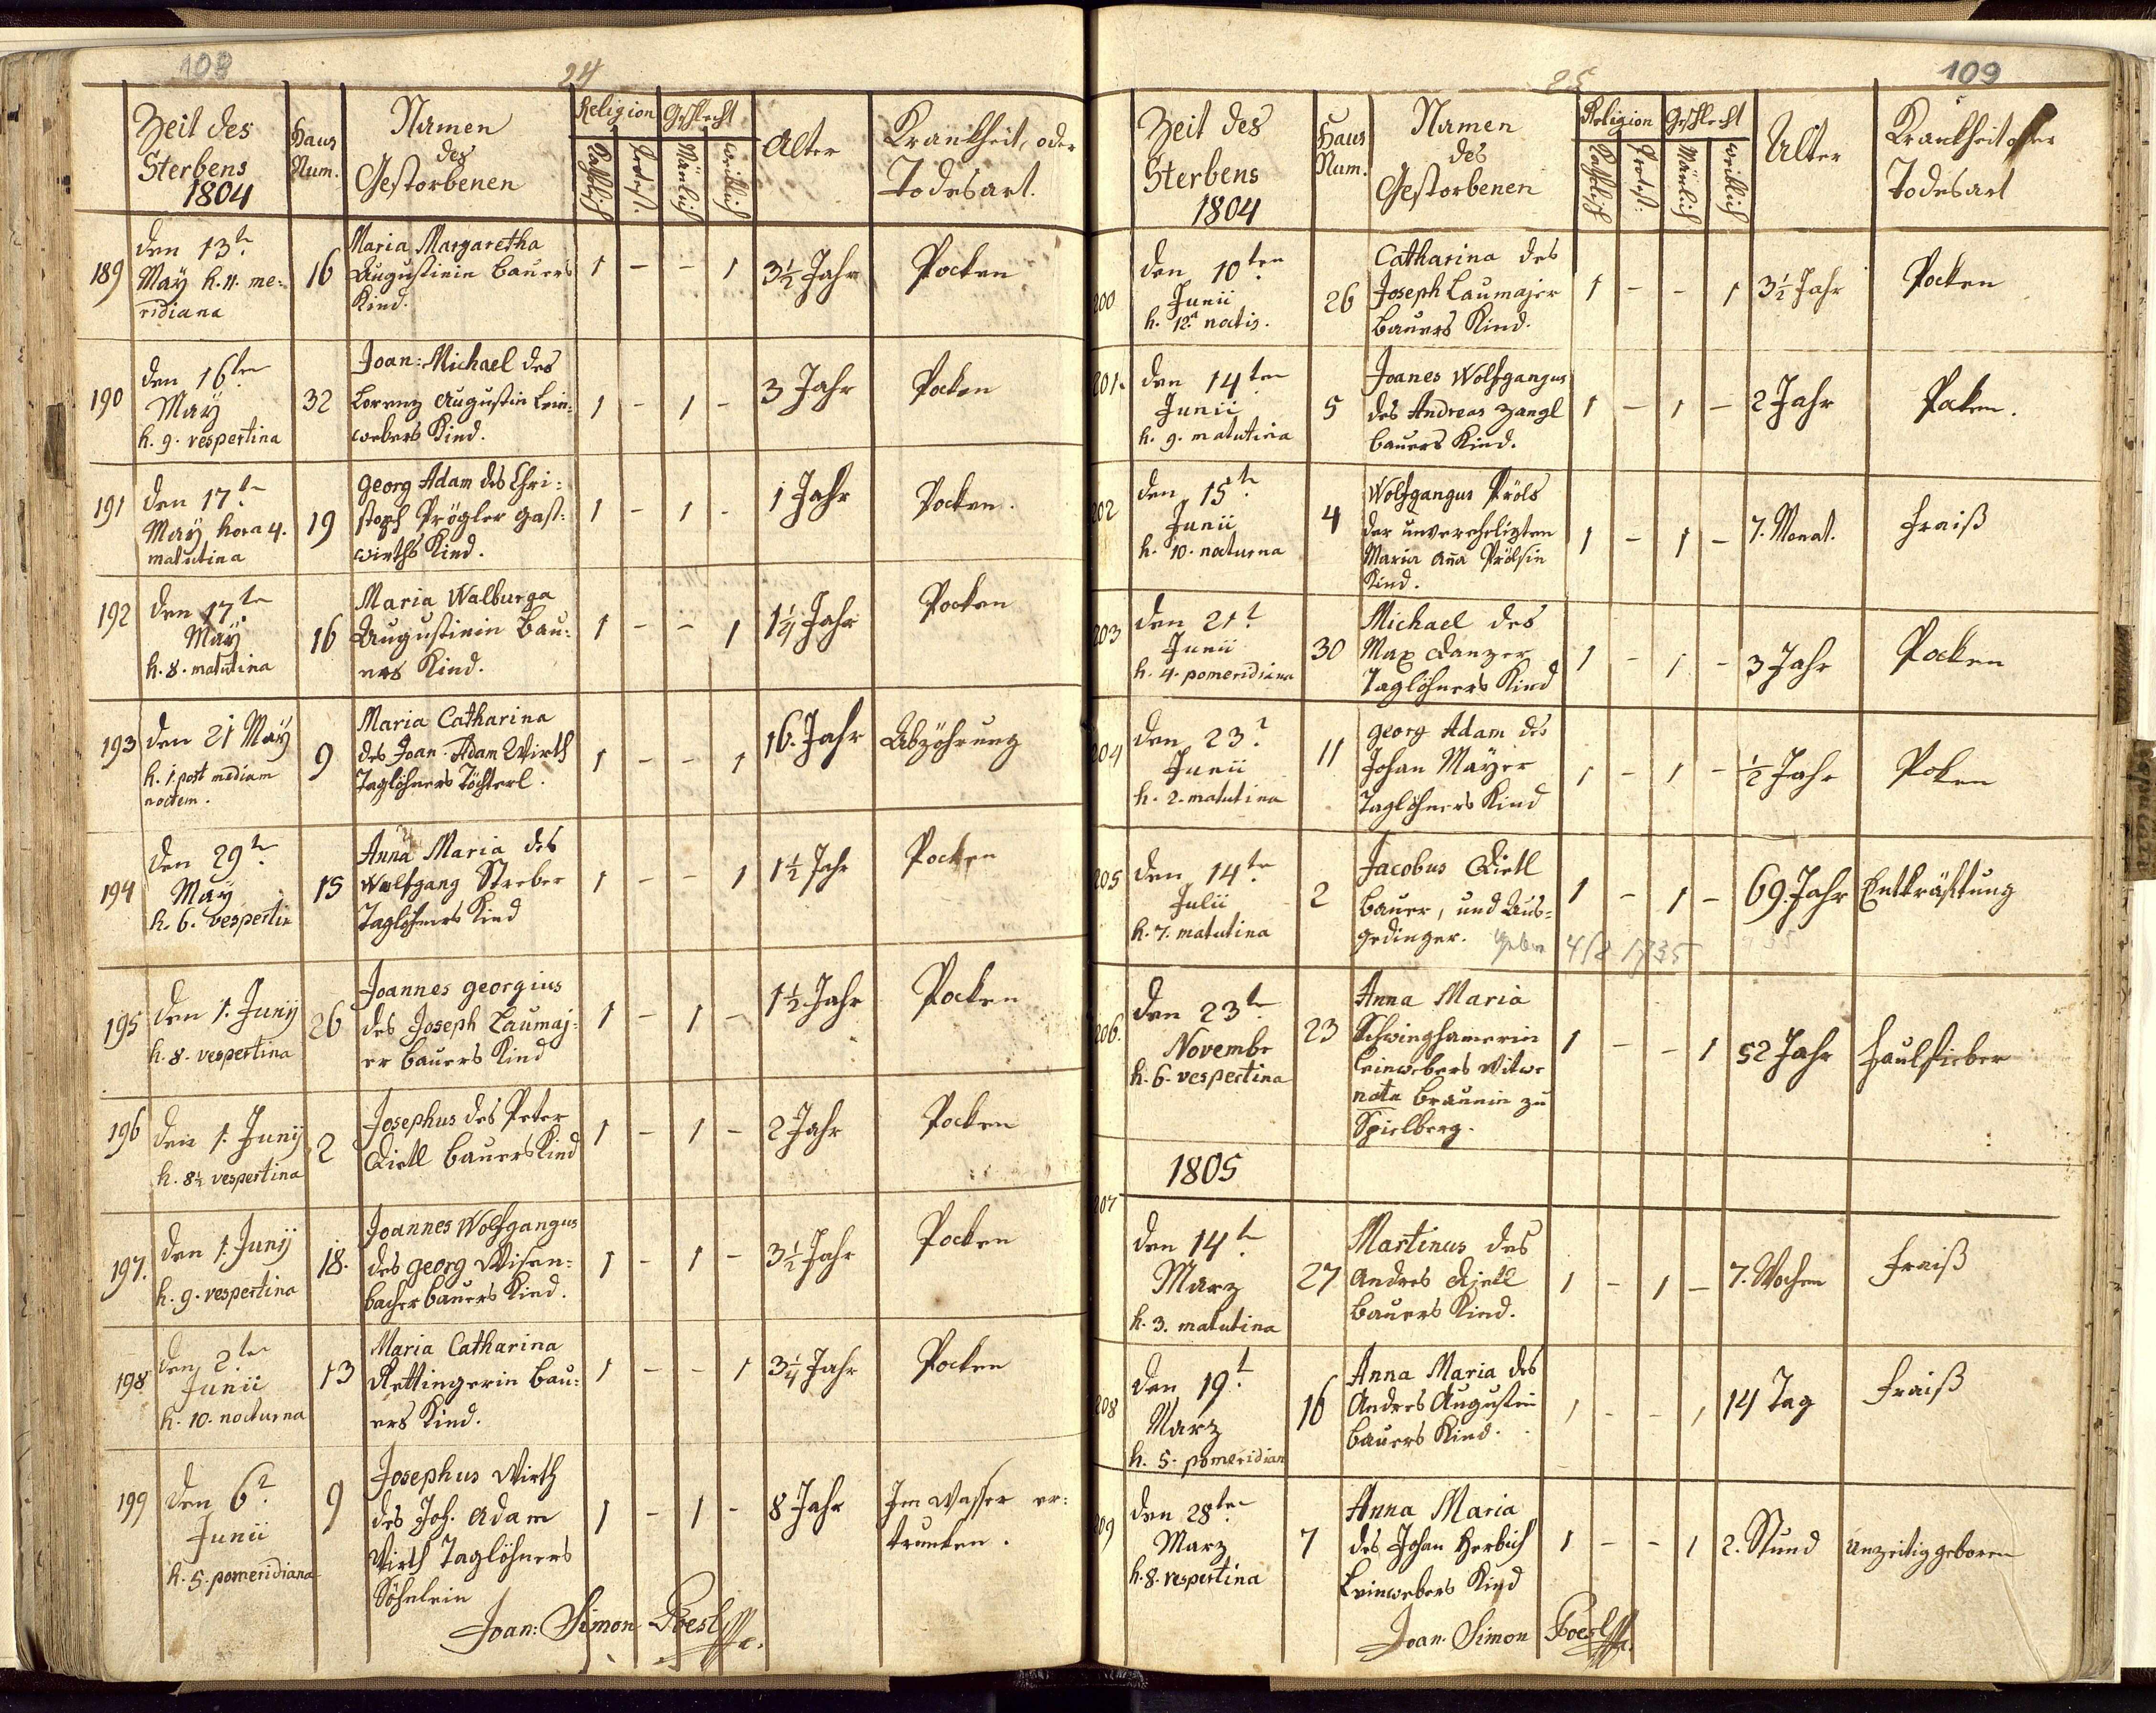 108
24
Zeit des
Sterbens
1804
Haus
Num.
Namen
des
Gestorbenen
Religion
Geschlecht
Katholisch
Protest.
Mänlich
weiblich
Alter
Krankheit, oder
Todesart.
189
den 13t
May h. 11. me-
ridiana
16
Maria Margaretha
Augustinin Bauers
Kind.
1 - - 1
3½ Jahr
Pocken
190
den 16ten
May
h. 9. vespertina
32
Joan: Michael des
Lorenz Augustin Lein-
webers Kind.
1 - 1 -
3 Jahr
Pocken
191
den 17t
May hora 4.
matutina
19
Georg Adam des Chri-
stoph Prögler Gast-
wirths Kind.
1 - 1 -
1 Jahr
Pocken.
192
den 17te
May
h. 8. matutina
16
Maria Walburga
Augustinin Bau-
ers Kind.
1 - - 1
1¼ Jahr
Pocken
193
den 21 May
h. 1. post mediam
noctem.
9
Maria Catharina
des Joan Adam Wirth
Taglöhners Töchterl.
1 - - 1
16. Jahr
Abzöhrung
194
den 29te
May
h. 6. vespertin
15
Anna Maria des
Wolfgang Streber
Taglöhners Kind
1 - - 1
1½ Jahr
Pocken
195
den 1. Junij
h. 8. vespertina
26
Joannes Georgius
des Joseph Laumaj-
er Bauers Kind
1 - 1 -
1½ Jahr
Pocken
196
den 1. Junij
h. 8½ vespertina
2
Josephus des Peter
Dietl Bauers Kind
1 - 1 -
2 Jahr
Pocken
197.
den 1. Junij
h. 9. vespertina
18.
Joannes Wolfgangus
des Georg Wisen-
bacher Bauers Kind.
1 - 1 -
3½ Jahr
Pocken
198
den 2ten
Junii
h. 10. nocturna
13
Maria Catharina
Rettingerin Bau-
ers Kind.
1 - - 1
3¼ Jahr
Pocken
199
den 6t
Junii
h. 5. pomeridiana
9
Josephus Wirth
des Joh. Adam
Wirth Taglöhners
Söhnlein
1 - 1 -
8 Jahr
Im Wasser er-
trunken.
Joan: Simon Poesl
25
109
Zeit des
Sterbens
1804
Haus
Num.
Namen
des
Gestorbenen
Religion
Geschlecht
Katholisch
Protest:
Mänlich
weiblich
Alter
Krankheit oder
Todesart
200
den 10ten
Junii
h. 12a noctis.
26
Catharina des
Joseph Laumajer
Bauers Kind.
1 - - 1
3½ Jahr
Pocken
201.
den 14ten
Junii
h. 9. matutina
5
Joanes Wolfgangus
des Andreas Zangl
Bauers Kind.
1 - 1 -
2 Jahr
Poken.
202
den 15t
Junii
h. 10. nocturna
4
Wolfgangus Pröls
der unverehelichten
Maria Ana Prölsin
Kind.
1 - 1 -
7. Monat.
Fraiß
203
den 21t
Junii
h. 4. pomeridiana
30
Michael des
Max Danzer
Taglöhners Kind
1 - 1 -
3 Jahr
Pocken
204
den 23t
Junii
h. 2. matutina
11
Georg Adam des
Johan Mayer
Taglöhners Kind
1 - 1 -
½ Jahr
Poken
205
den 14te
Julii
h. 7. matutina
2
Jacobus Dietl
Bauer, und Aus-
gedinger.
1 - 1 -
69. Jahr
Entkräftung
206.
den 23t
Novembr
h. 6. vespertina
23
Anna Maria
Schwinghamerin
Leinwebers Witwe
nata Braunin zu
Spielberg.
1 - - 1
52 Jahr
Faulfieber
1805
207
den 14t
Marz
h. 3. matutina
27
Martinus des
Andres Dietl
Bauers Kind.
1 - 1 -
7. Wochen
Fraiß
208
den 19t
Marz
h. 5. pomeridian
16
Anna Maria des
Andres Augustin
Bauers Kind.
1 - - 1
14 Tag
Fraiß
209
den 28ten
Marz
h. 8. vespertina
7
Anna Maria
des Johan Herbich
Leinwebers Kind
1 - - 1
2. Stund
Unzeitig geboren
Joan. Simon Poesl